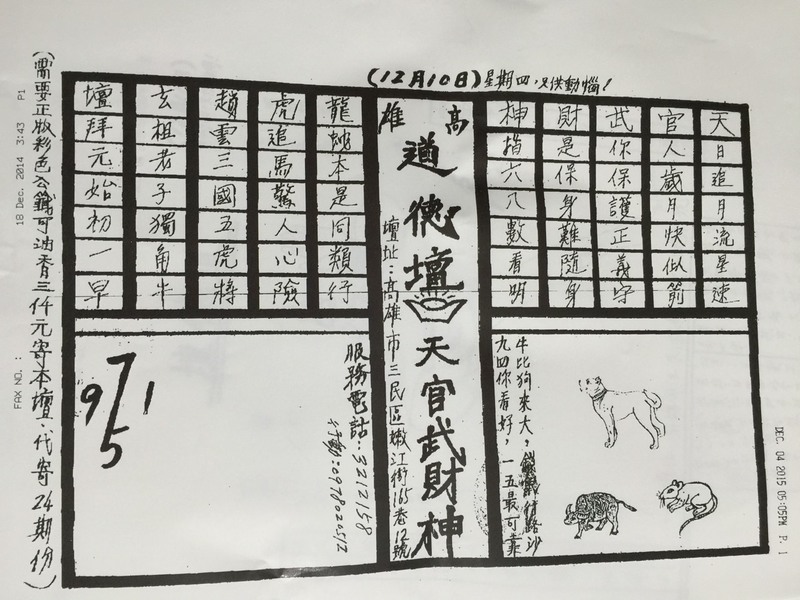 (12月10日)星期四,只供動惱!
天日追月流星速
官人歲月快似箭
武你保護正義守
財是保身難隨身
神指六八數看明
高雄
道德壇
天官武財神
壇址:高雄市三民區嫩江街165巷12號
龍蛇本是同類行
虎追馬驚人心險
趙雲三國五虎將
玄祖老子獨角牛
壇拜元始初一早
牛比狗來大,
九四你看好,一五最可靠
服務電話:3212158
行動:0978020512
7
9 1
5
(需要正版彩色公籤可油香三仟元寄本壇.代寄24期份)
18 Dec. 2014 3:43 P1
FAX NO. :
DEC. 04 2015 05:05PM P. 1